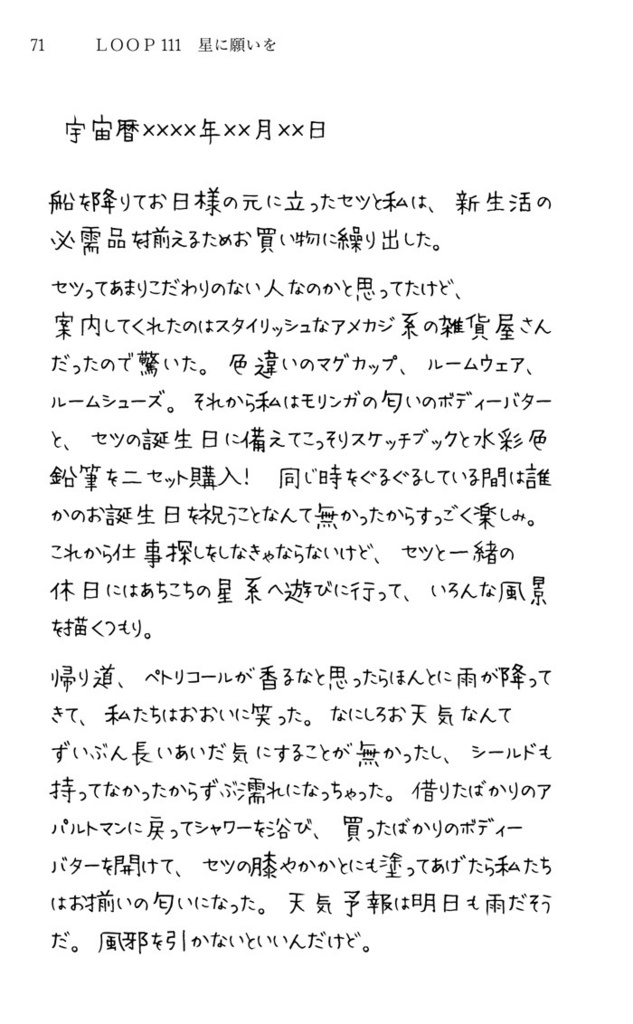 71 LOOP 111 星に願いを
宇宙暦××××年××月××日
船を降りてお日様の元に立ったセツと私は、新生活の
必需品を揃えるためお買い物に繰り出した。
セツってあまりこだわりのない人なのかと思ってたけど、
案内してくれたのはスタイリッシュなアメカジ系の雑貨屋さん
だったので驚いた。色違いのマグカップ、ルームウェア、
ルームシューズ。それから私はモリンガの匂いのボディーバター
と、セツの誕生日に備えてこっそりスケッチブックと水彩色
鉛筆を二セット購入! 同じ時をぐるぐるしている間は誰
かのお誕生日を祝うことなんて無かったからすっごく楽しみ。
これから仕事探しをしなきゃならないけど、セツと一緒の
休日にはあちこちの星系へ遊びに行って、いろんな風景
を描くつもり。
帰り道、ペトリコールが香るなと思ったらほんとに雨が降って
きて、私たちはおおいに笑った。なにしろお天気なんて
ずいぶん長いあいだ気にすることが無かったし、シールドも
持ってなかったからずぶ濡れになっちゃった。借りたばかりのア
パルトマンに戻ってシャワーを浴び、買ったばかりのボディー
バターを開けて、セツの膝やかかとにも塗ってあげたら私たち
はお揃いの匂いになった。天気予報は明日も雨だそう
だ。風邪を引かないといいんだけど。